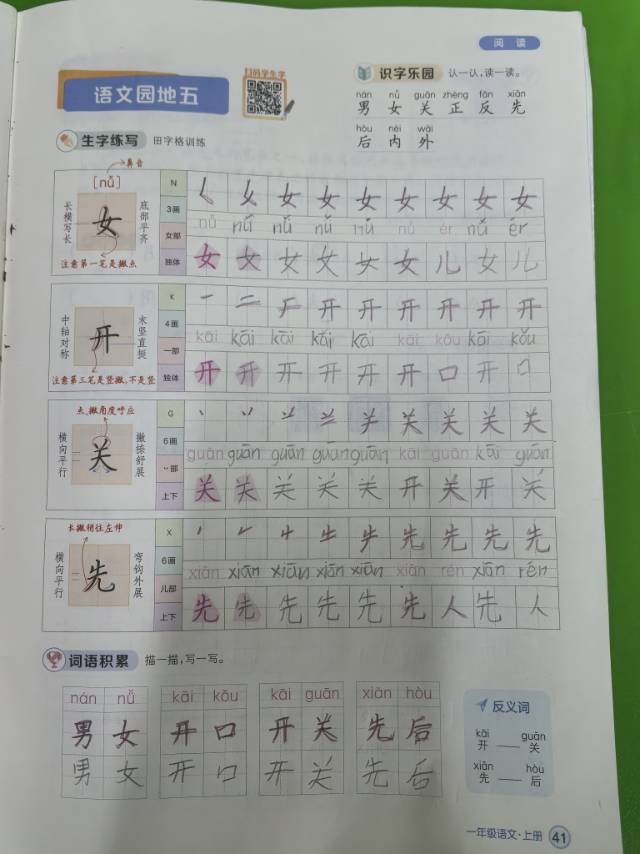 阅 读
语文园地五
扫码学生字
识字乐园 认一认,读一读。
nán nǚ guān zhèng fǎn xiān
男 女 关 正 反 先
hòu nèi wài
后 内 外
生字练写 田字格训练
鼻音
[nǚ]
长横写长
女
底部平齐
注意第一笔是撇点
N
3画
女部
独体
女 女 女 女 女 女 女 女
nǚ nǚ nǚ nǚ nǚ nǚ ér nǚ ér
女 女 女 女 女 女 儿 女 儿
中轴对称
开
末竖直挺
注意第三笔是竖撇,不是竖
K
4画
一部
独体
一 二 𠂆 开 开 开 开 开 开
kāi kāi kāi kāi kāi kāi kǒu kāi kǒu
开 开 开 开 开 开 口 开 口
点、撇角度呼应
横向平行
关
撇捺舒展
G
6画
丷部
上下
丶 丷 关 关 关 关 关
guān guān guān guān guān kāi guān kāi guān
关 关 关 关 关 开 关 开 关
长撇稍往左伸
横向平行
先
弯钩外展
X
6画
儿部
上下
先 先 先 先
xiān xiān xiān xiān xiān xiān rén xiān rén
先 先 先 先 先 先 人 先 人
词语积累 描一描,写一写。
nán nǚ kāi kǒu kāi guān xiān hòu
男 女 开 口 开 关 先 后
男 女 开 口 开 关 先 后
反义词
kāi guān
开 —— 关
xiān hòu
先 —— 后
一年级语文·上册 41